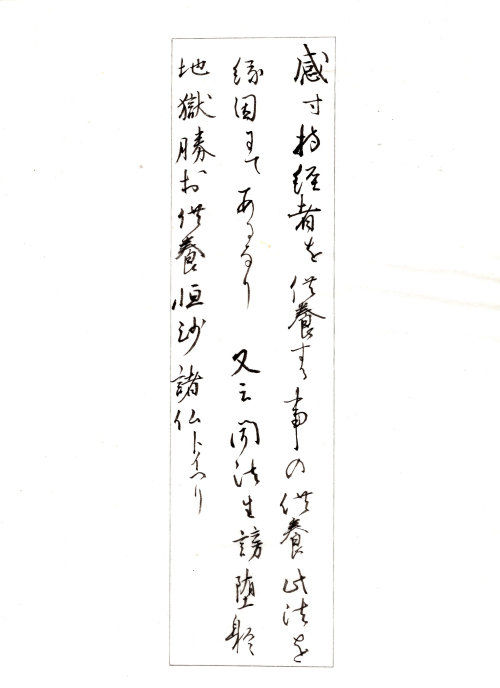 感ず持経者を供養する事の供養此法を
縁因にてあるなり 又云聞法生謗堕於
地獄勝於供養恒沙諸仏トイヘリ